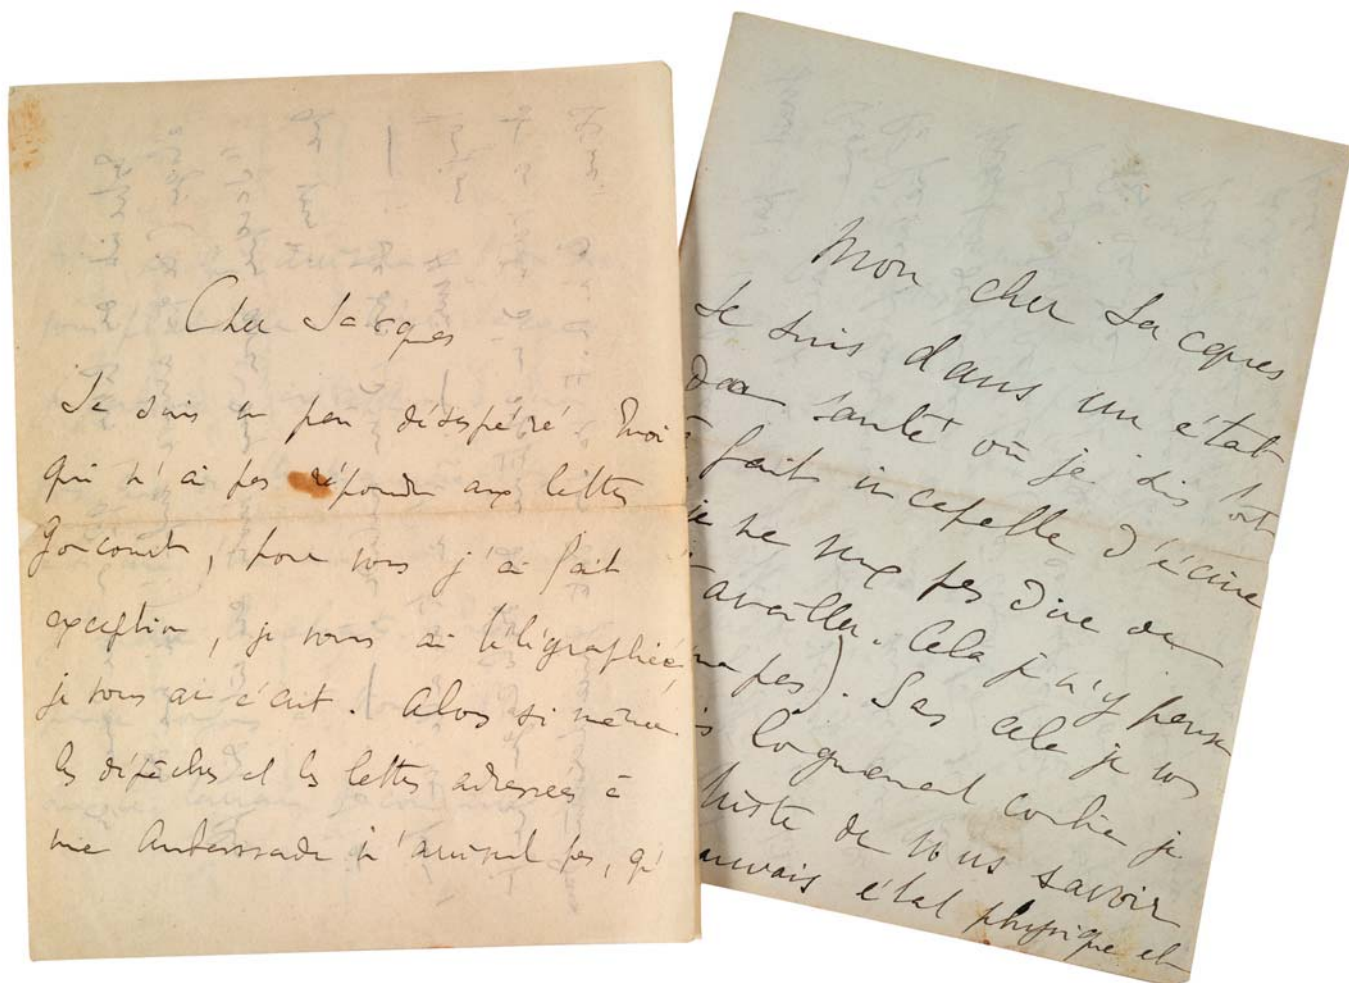 Cher Jacques
Je suis un peu désespéré. Moi
qui n'ai pas répondu aux lettres
Goncourt, pour vous j'ai fait
exception, je vous ai télégraphié,
je vous ai écrit. Alors si même
les dépêches et les lettres adressées à
une Ambassade n'arrivent pas, qu'
Mon cher Jacques
Je suis dans un état
de santé où je suis tout
à fait incapable d'écrire
je ne veux pas dire de
travailler. Cela je n'y pense
pas). Sans cela je vous
longuement combien je
triste de vous savoir
mauvais état physique et